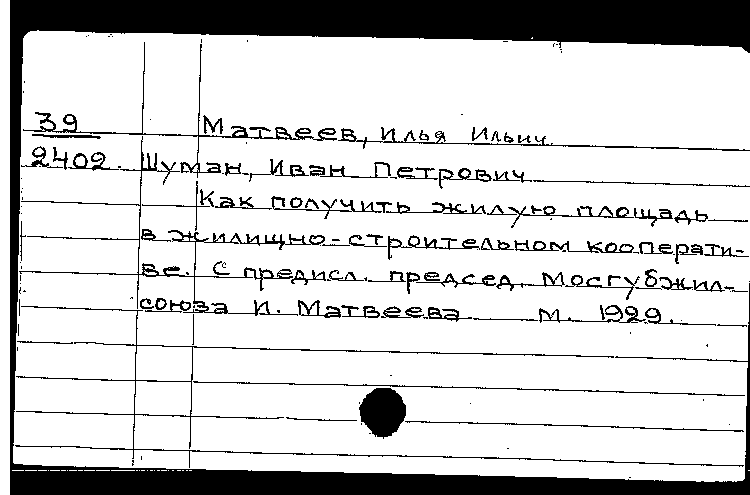 39 Матвеев, Илья Ильич
2402. Шуман, Иван Петрович
Как получить жилую площадь
в жилищно-строительном кооперати-
ве. С предисл. председ. Мосгубжил-
союза И. Матвеева М. 1929.